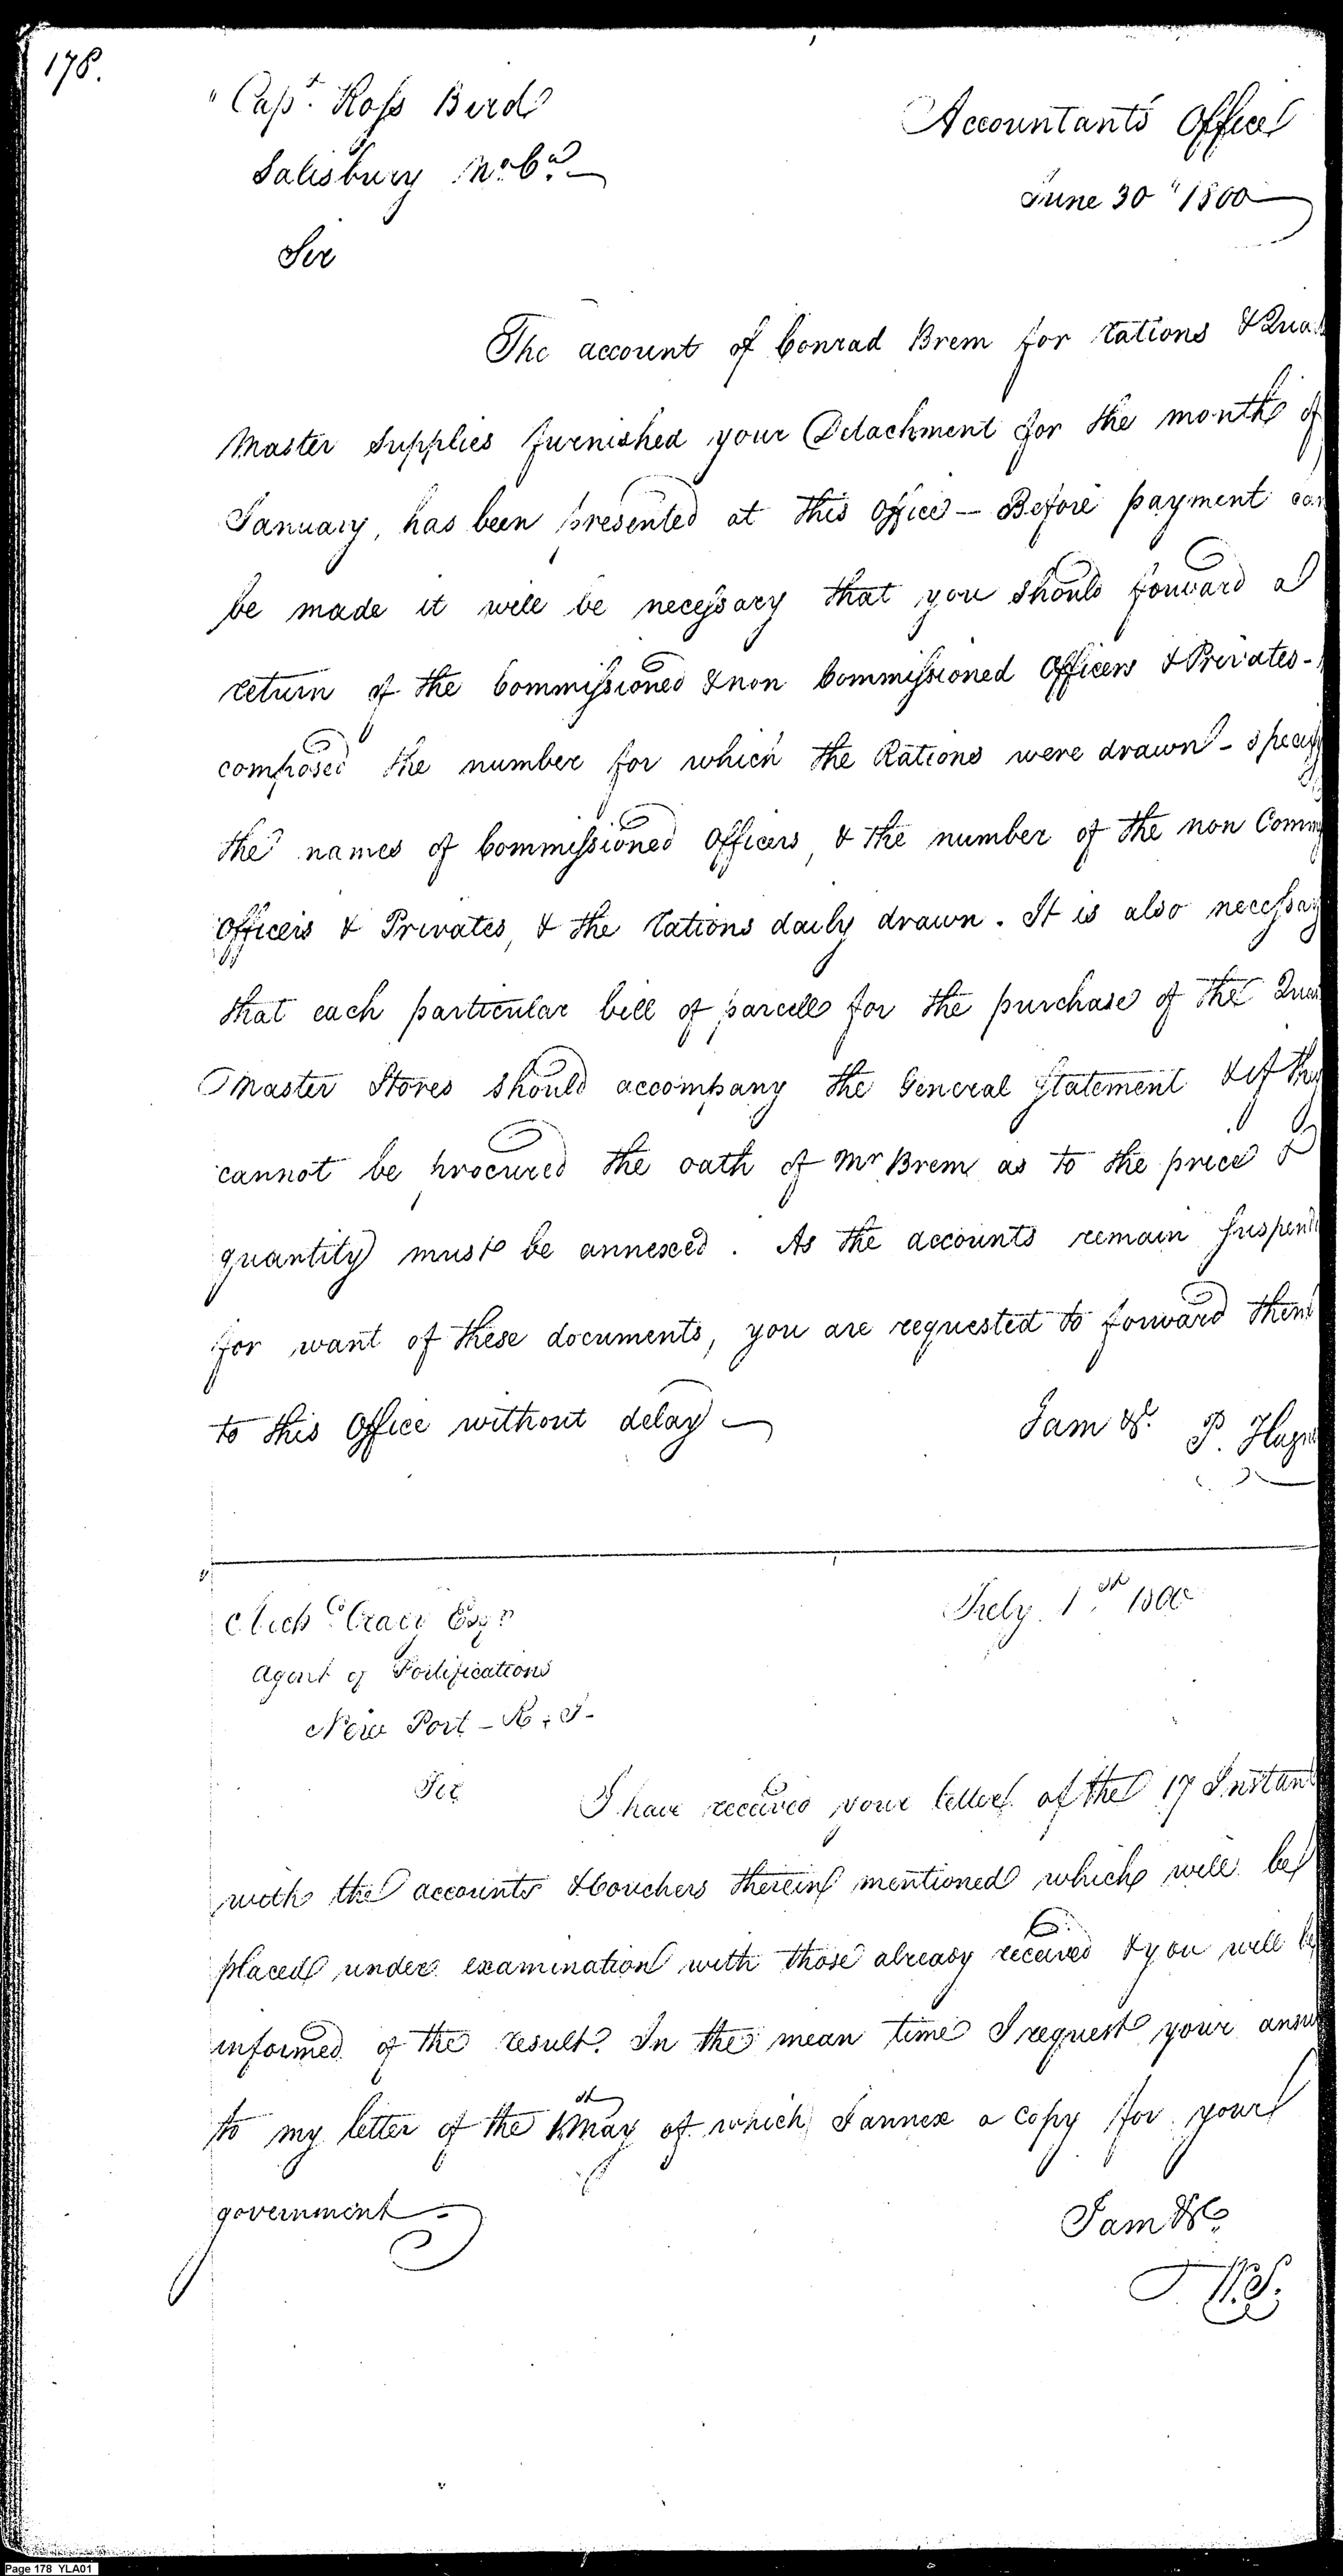 178.
" Capt. Ross Bird
Accountants Office
Salisbury No. Ca.
June 30" 1800
Sir
The account of Conrad Brem for rations & Qua
Master Supplies furnished your Detachment for the month of
January, has been presented at this office — Before payment can
be made it will be necessary that you should forward a
return of the Commissioned & non Commissioned Officers & Privates -
composed the number for which the Rations were drawn - specify
the names of Commissioned Officers, & the number of the non Comm
Officers & Privates, & the rations daily drawn. It is also necessary
that each particular bill of parcells for the purchase of the Quar
Master Stores should accompany the General Statement & if they
cannot be procured the oath of Mr Brem as to the price &
quantity must be annexed. As the accounts remain Suspend
for want of these documents, you are requested to forward them
to this Office without delay —
I am &c. P. Hagn
July 1st 1800
Esqr
Agent of Fortifications
New Port - R. I -
Sir
I have received your letter of the 17 Instant
with the accounts & Vouchers therein mentioned which will be
placed under examination with those already received & you will be
informed of the result. In the mean time I request your answ
to my letter of the 1st May of which I annex a copy for your
government.
I am &c.
W.S.
Page 178 YLA01